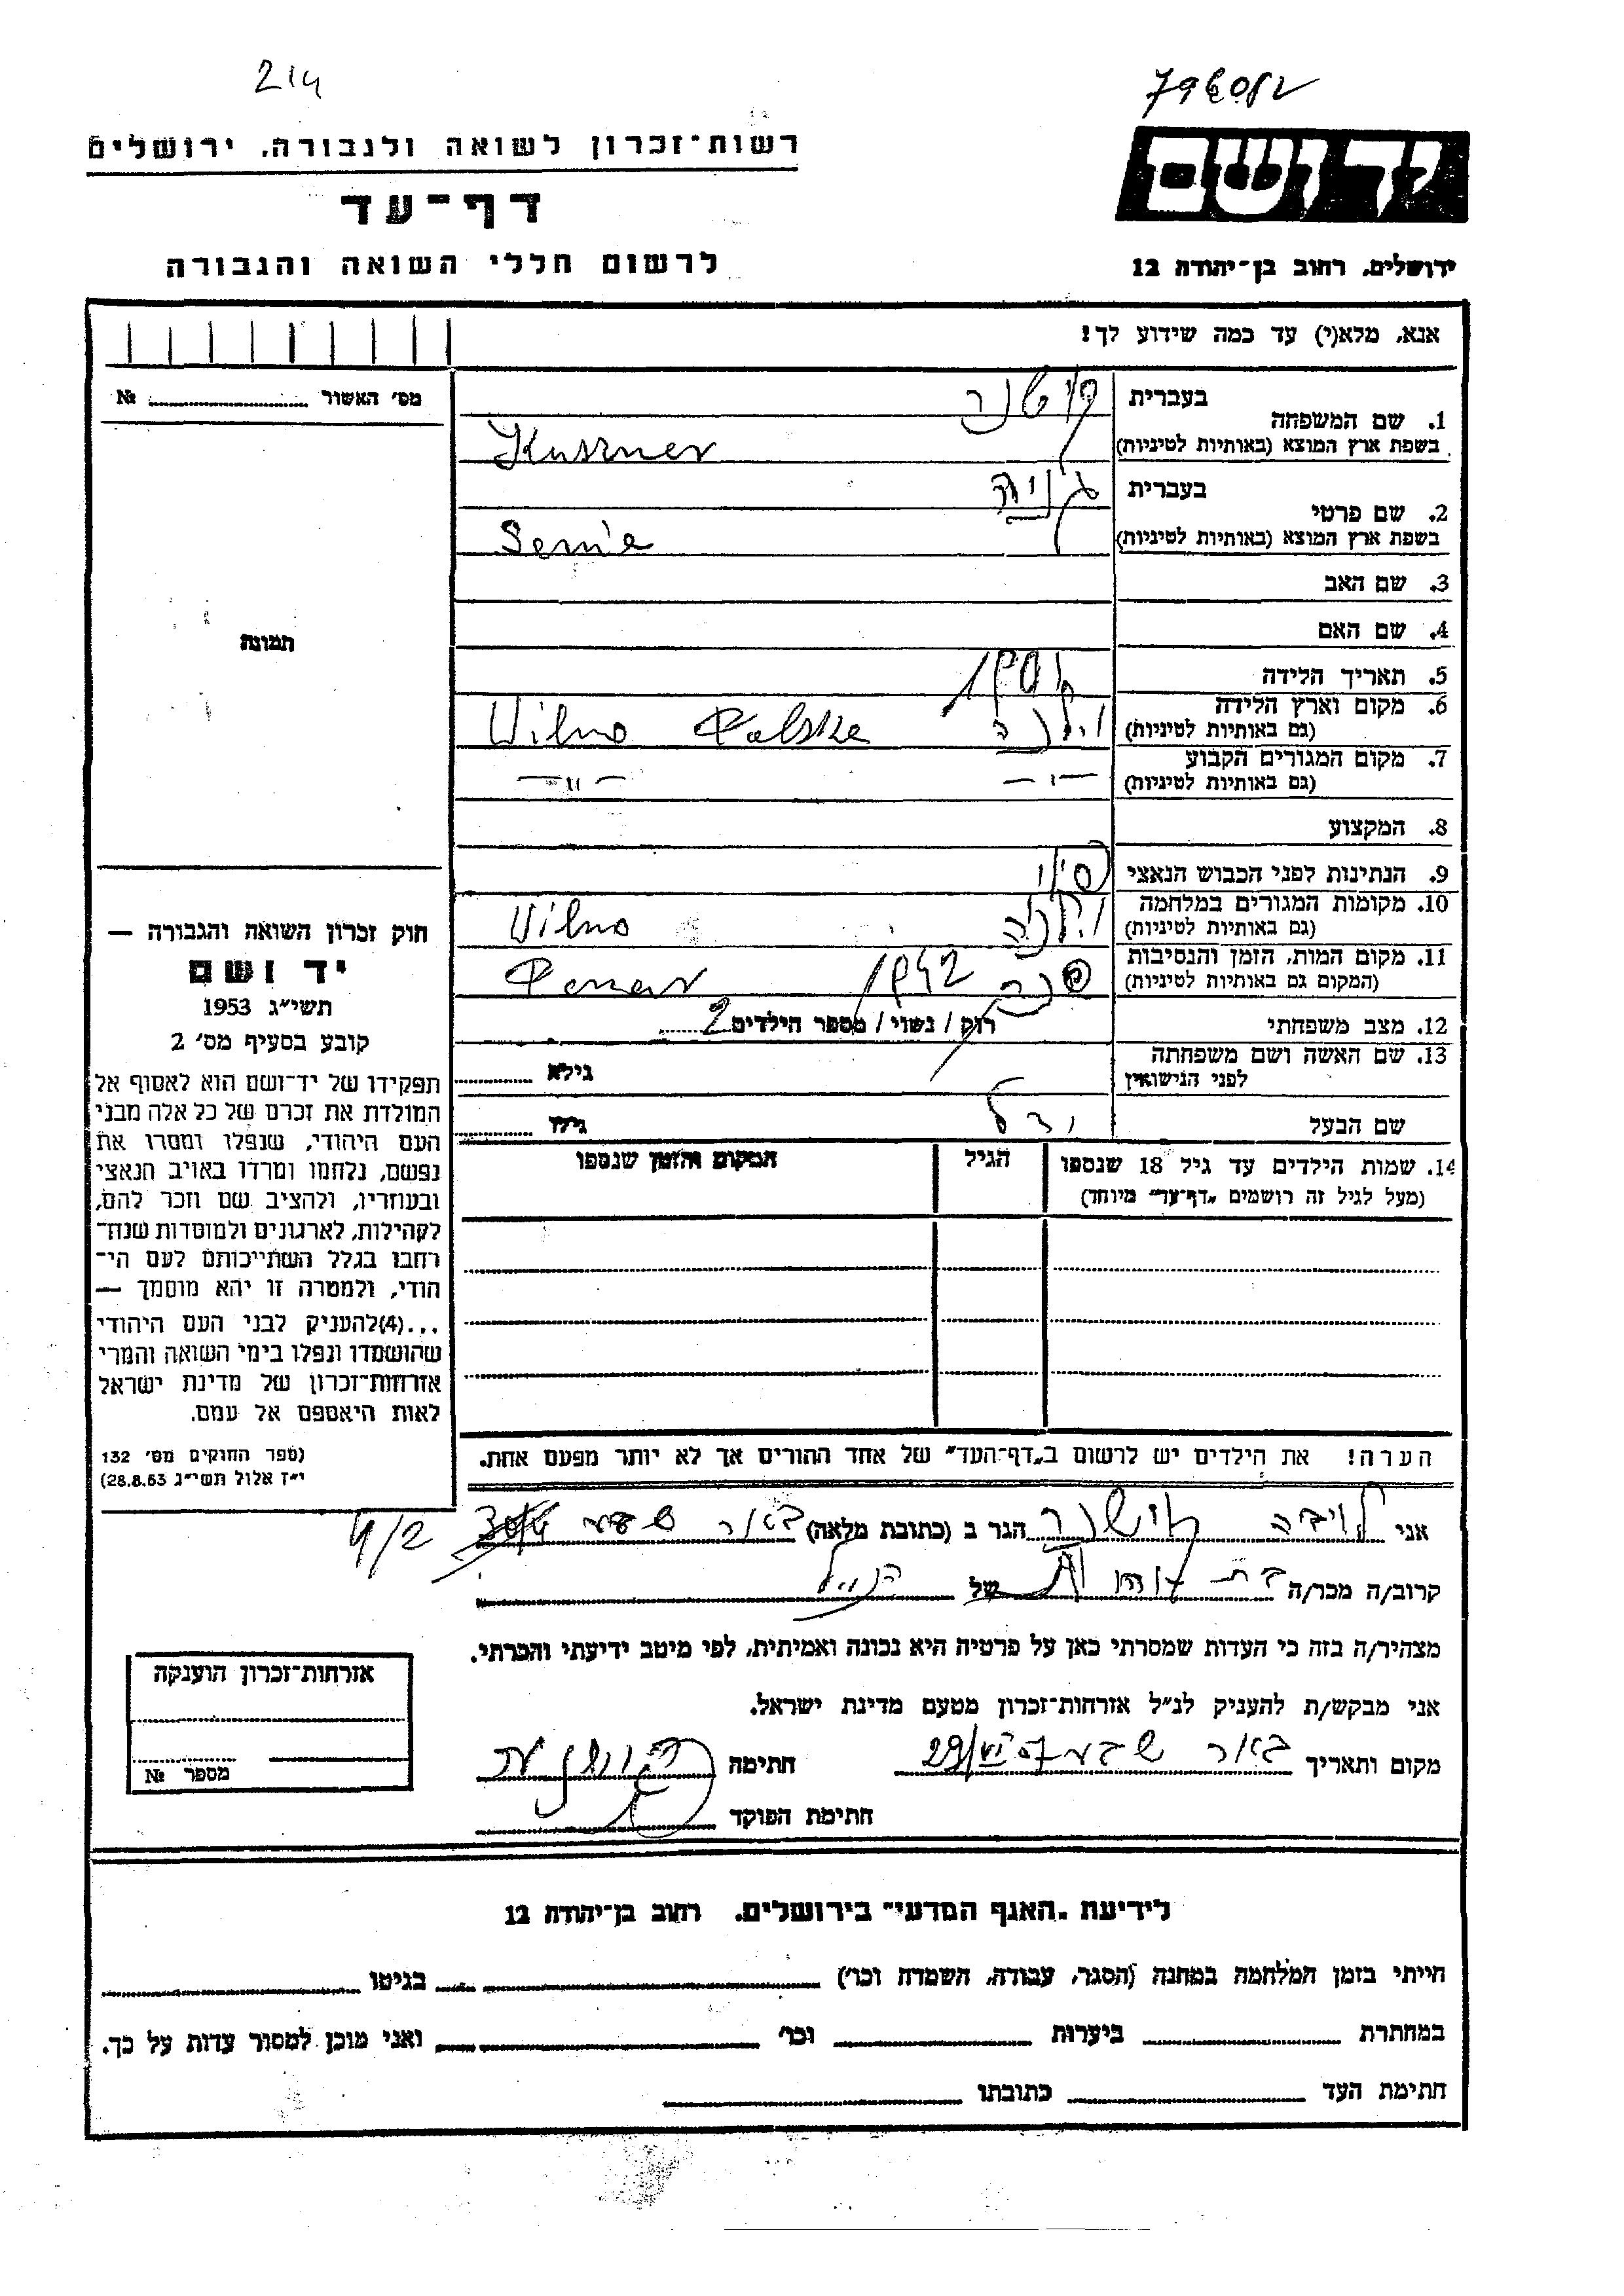 214
רשות־זכרון לשואה ולגבורה, ירושלים
דף־עד
לרשום חללי השואה והגבורה
יד ושם
ירושלים, רחוב בן־יהודה 12
אנא, מלא(י) עד כמה שידוע לך!
מס' האשור № 
תמונה
חוק זכרון השואה והגבורה —
יד ושם
תשי״ג 1953
קובע בסעיף מס' 2
תפקידו של יד־ושם הוא לאסוף אל
המולדת את זכרם של כל אלה מבני
העם היהודי, שנפלו ומסרו את
נפשם, נלחמו ומרדו באויב הנאצי
ובעוזריו, ולהציב שם וזכר להם,
לקהילות, לארגונים ולמוסדות שנח־
רבו בגלל השתייכותם לעם הי־
הודי, ולמטרה זו יהא מוסמך —
...(4)להעניק לבני העם היהודי
שהושמדו ונפלו בימי השואה והמרי
אזרחות־זכרון של מדינת ישראל
לאות היאספם אל עמם.
(ספר החוקים מס' 132
י״ז אלול תשי״ג 28.8.53)
בעברית קושנר
1. שם המשפחה
בשפת ארץ המוצא (באותיות לטיניות) Kuszner
בעברית
2. שם פרטי
בשפת ארץ המוצא (באותיות לטיניות)
3. שם האב
4. שם האם
5. תאריך הלידה
6. מקום וארץ הלידה וילנה Wilno Polska
(גם באותיות לטיניות)
7. מקום המגורים הקבוע —〃— —〃—
(גם באותיות לטיניות)
8. המקצוע
9. הנתינות לפני הכבוש הנאצי
10. מקומות המגורים במלחמה וילנה Wilno
(גם באותיות לטיניות)
11. מקום המות, הזמן והנסיבות פונר 1942 Ponar
(המקום גם באותיות לטיניות)
12. מצב משפחתי רוק / נשוי / מספר הילדים 2
13. שם האשה ושם משפחתה
לפני הנישואין גילא
שם הבעל גילו
14. שמות הילדים עד גיל 18 שנספו הגיל המקום והזמן שנספו
(מעל לגיל זה רושמים „דף־עד״ מיוחד)
הערה! את הילדים יש לרשום ב„דף־העד״ של אחד ההורים אך לא יותר מפעם אחת.
אני קושנר הגר ב (כתובת מלאה) באר שבע 4/2
קרוב/ה מכר/ה של הנ״ל
מצהיר/ה בזה כי העדות שמסרתי כאן על פרטיה היא נכונה ואמיתית, לפי מיטב ידיעתי והכרתי.
אני מבקש/ת להעניק לנ״ל אזרחות־זכרון מטעם מדינת ישראל.
מקום ותאריך באר שבע חתימה
חתימת הפוקד
אזרחות־זכרון הוענקה
מספר №
לידיעת „האגף המדעי״ בירושלים, רחוב בן־יהודה 12
הייתי בזמן המלחמה במחנה (הסגר, עבודה, השמדה וכו') בגיטו
במחתרת ביערות וכו' ואני מוכן למסור עדות על כך.
חתימת העד כתובתו